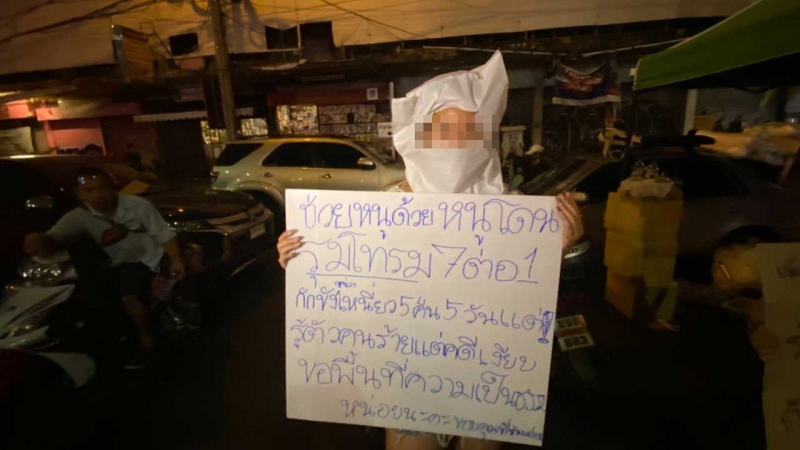 ช่วยหนูด้วย หนูโดน
รุมโทรม 7 ต่อ 1
กักขังหน่วงเหนี่ยว 5 คืน 5 วัน แต่
รู้ตัวคนร้ายแต่คดีเงียบ
ขอพื้นที่ความเป็นธรรม
หน่อยนะคะ